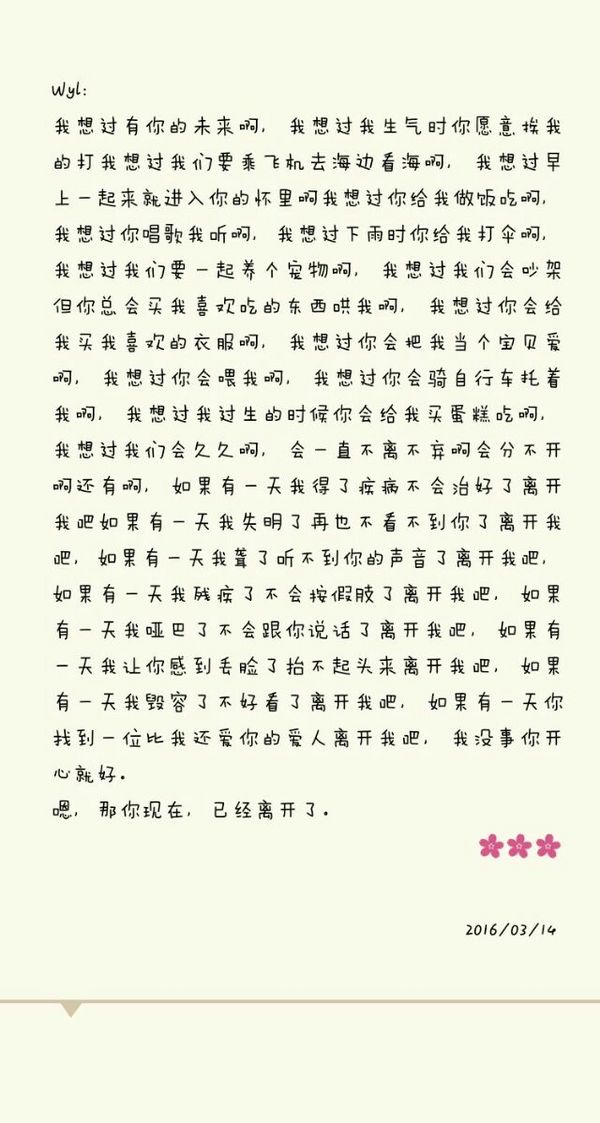 Wyl:
我想过有你的未来啊, 我想过我生气时你愿意挨我
的打我想过我们要乘飞机去海边看海啊, 我想过早
上一起来就进入你的怀里啊我想过你给我做饭吃啊,
我想过你唱歌我听啊, 我想过下雨时你给我打伞啊,
我想过我们要一起养个宠物啊, 我想过我们会吵架
但你总会买我喜欢吃的东西哄我啊, 我想过你会给
我买我喜欢的衣服啊, 我想过你会把我当个宝贝爱
啊, 我想过你会喂我啊, 我想过你会骑自行车托着
我啊, 我想过我过生的时候你会给我买蛋糕吃啊,
我想过我们会久久啊, 会一直不离不弃啊会分不开
啊还有啊, 如果有一天我得了疾病不会治好了离开
我吧如果有一天我失明了再也不看不到你了离开我
吧, 如果有一天我聋了听不到你的声音了离开我吧,
如果有一天我残疾了不会按假肢了离开我吧, 如果
有一天我哑巴了不会跟你说话了离开我吧, 如果有
一天我让你感到丢脸了抬不起头来离开我吧, 如果
有一天我毁容了不好看了离开我吧, 如果有一天你
找到一位比我还爱你的爱人离开我吧, 我没事你开
心就好。
嗯, 那你现在, 已经离开了。
2016/03/14